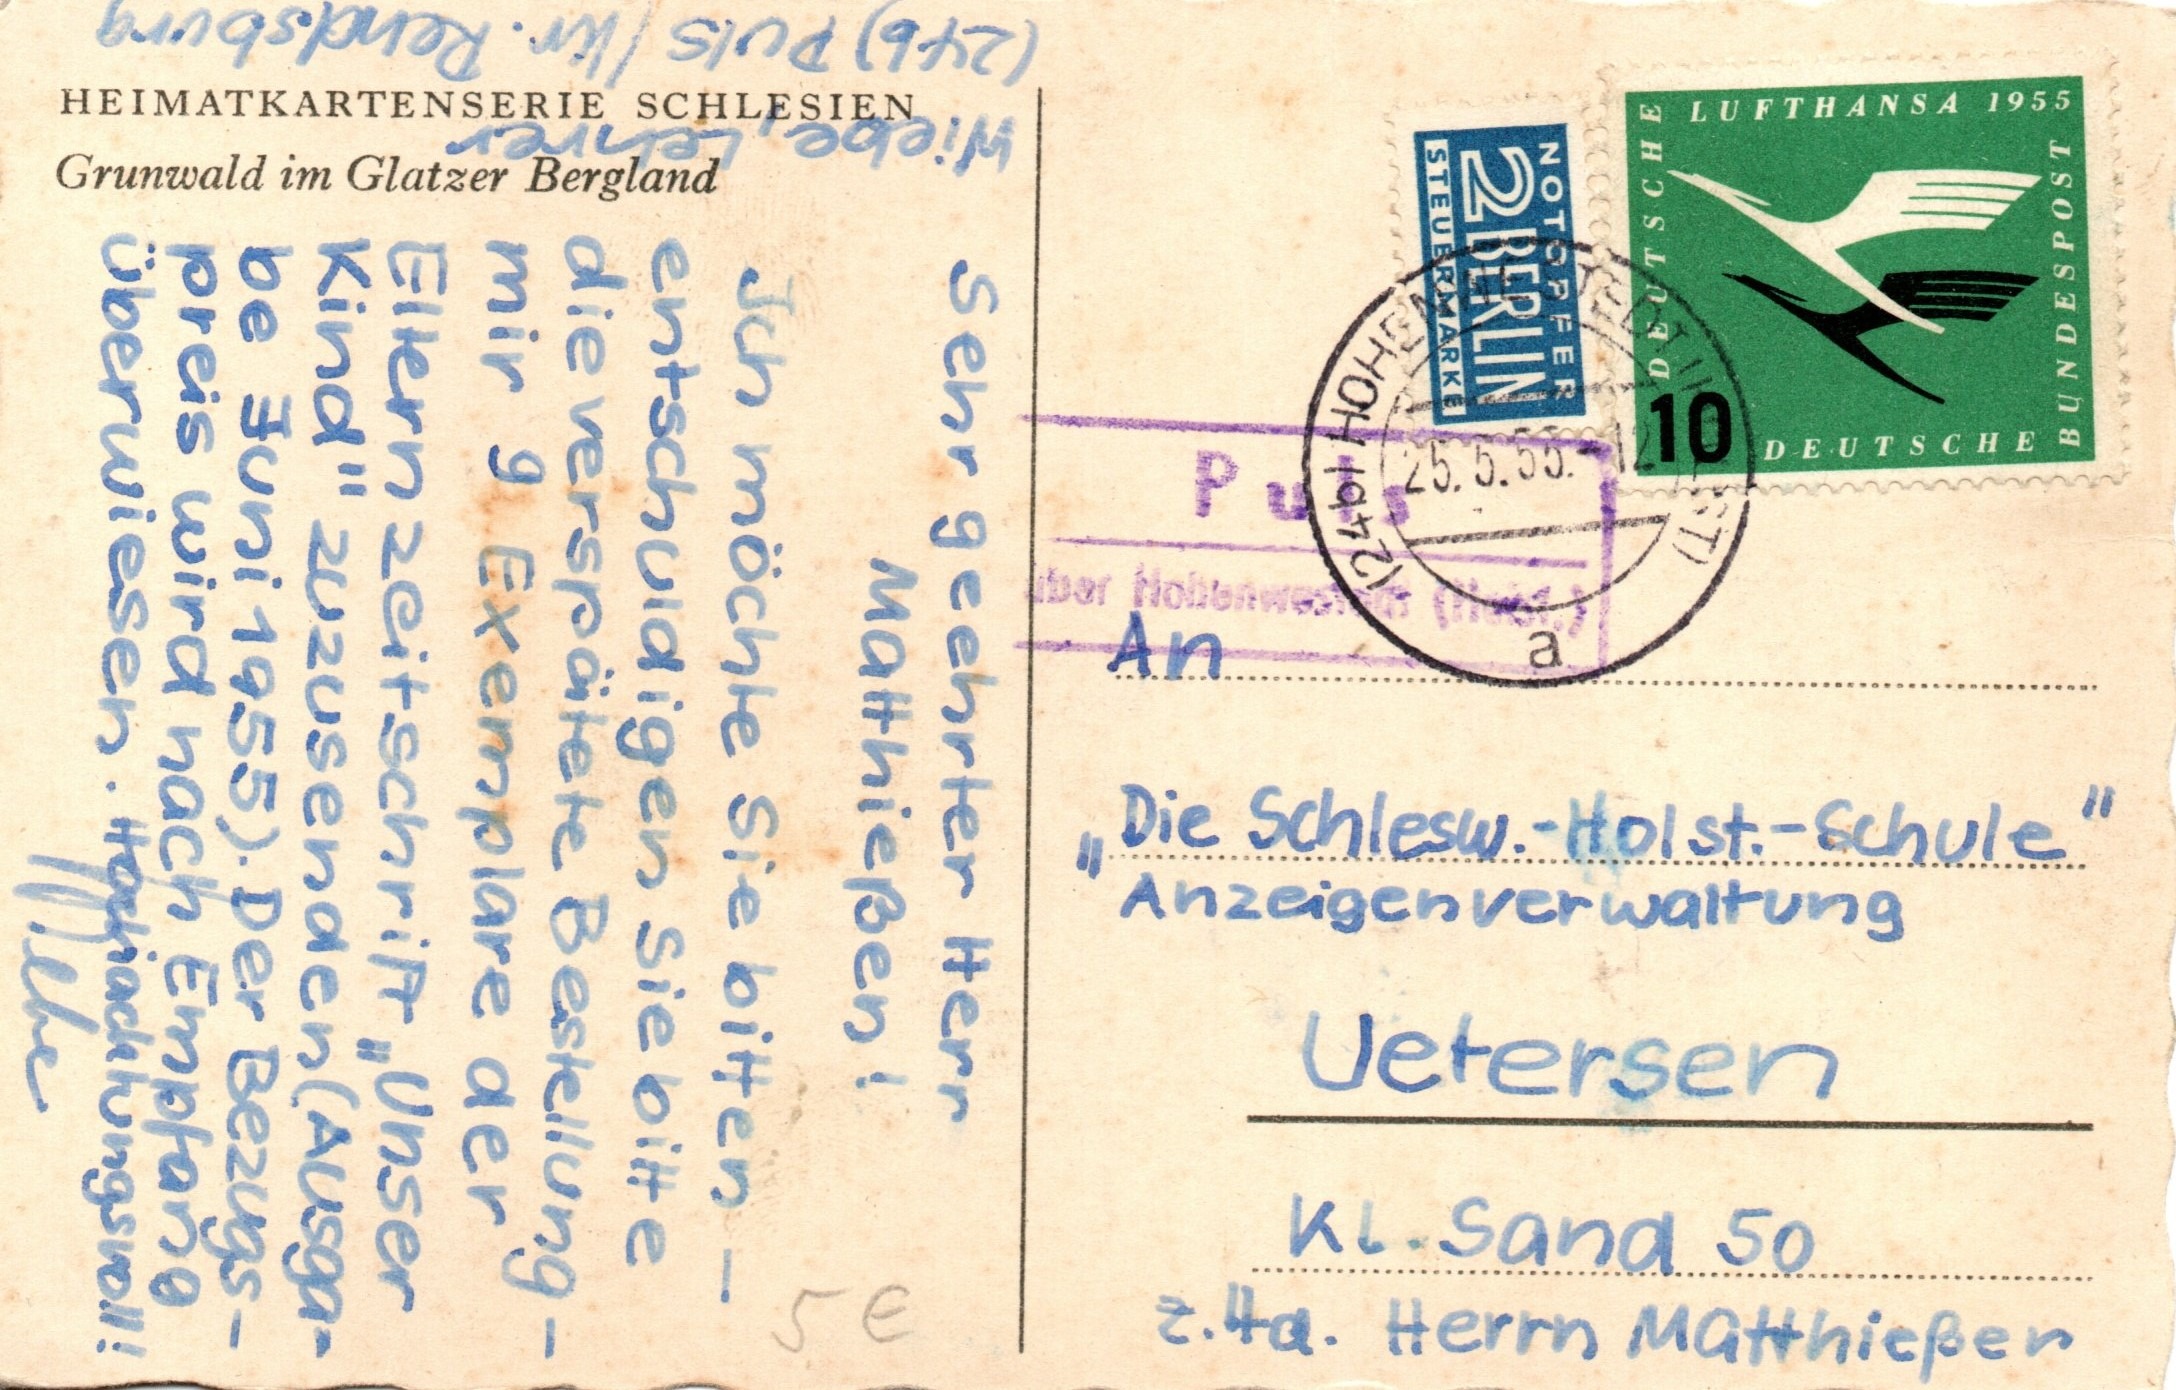 (24b) Puls / Kr. Rendsburg
Wiebe, Lehrer
HEIMATKARTENSERIE SCHLESIEN
Grunwald im Glatzer Bergland
Sehr geehrter Herr
Mathießen!
Ich möchte Sie bitten -
entschuldigen Sie bitte
die verspätete Bestellung -
mir 9 Exemplare der
Elternzeitschrift „Unser
Kind" zuzusenden (Ausga-
be Juni 1955). Der Bezugs-
preis wird nach Empfang
überwiesen. Hochachtungsvoll!
Wiebe
5 €
NOTOPFER
2 BERLIN
STEUERMARKE
DEUTSCHE LUFTHANSA 1955
DEUTSCHE BUNDESPOST
10
(24b) HOHENWESTEDT (HOLST)
25.5.55.-12
a
Puls
über Hohenwestedt (Holst.)
An
„Die Schlesw.-Holst.-Schule"
Anzeigenverwaltung
Uetersen
Kl. Sand 50
z.Hd. Herrn Matthießen